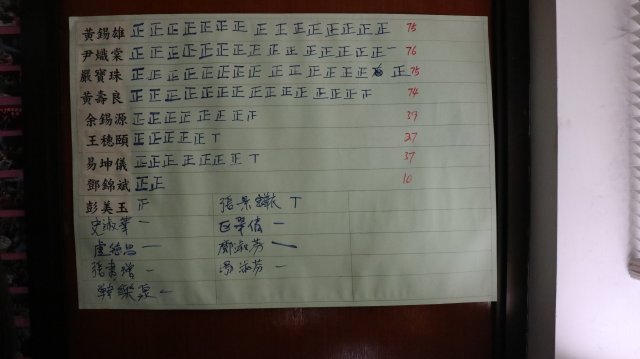 黃錫雄 正正正正正正正正正正正正正正正 75
尹熾棠 正正正正正正正正正正正正正正正一 76
嚴寶珠 正正正正正正正正正正正正正正 正 75
黃壽良 正正正正正正正正正正正正正正 74
余錫源 正正正正正正正 39
王穗頤 正正正正正丅 27
易坤儀 正正正正正正正丅 37
鄧錦斌 正正 10
彭美玉 正 丅
一 一
一 鄭淑芬 一
一 淑芬 一
一